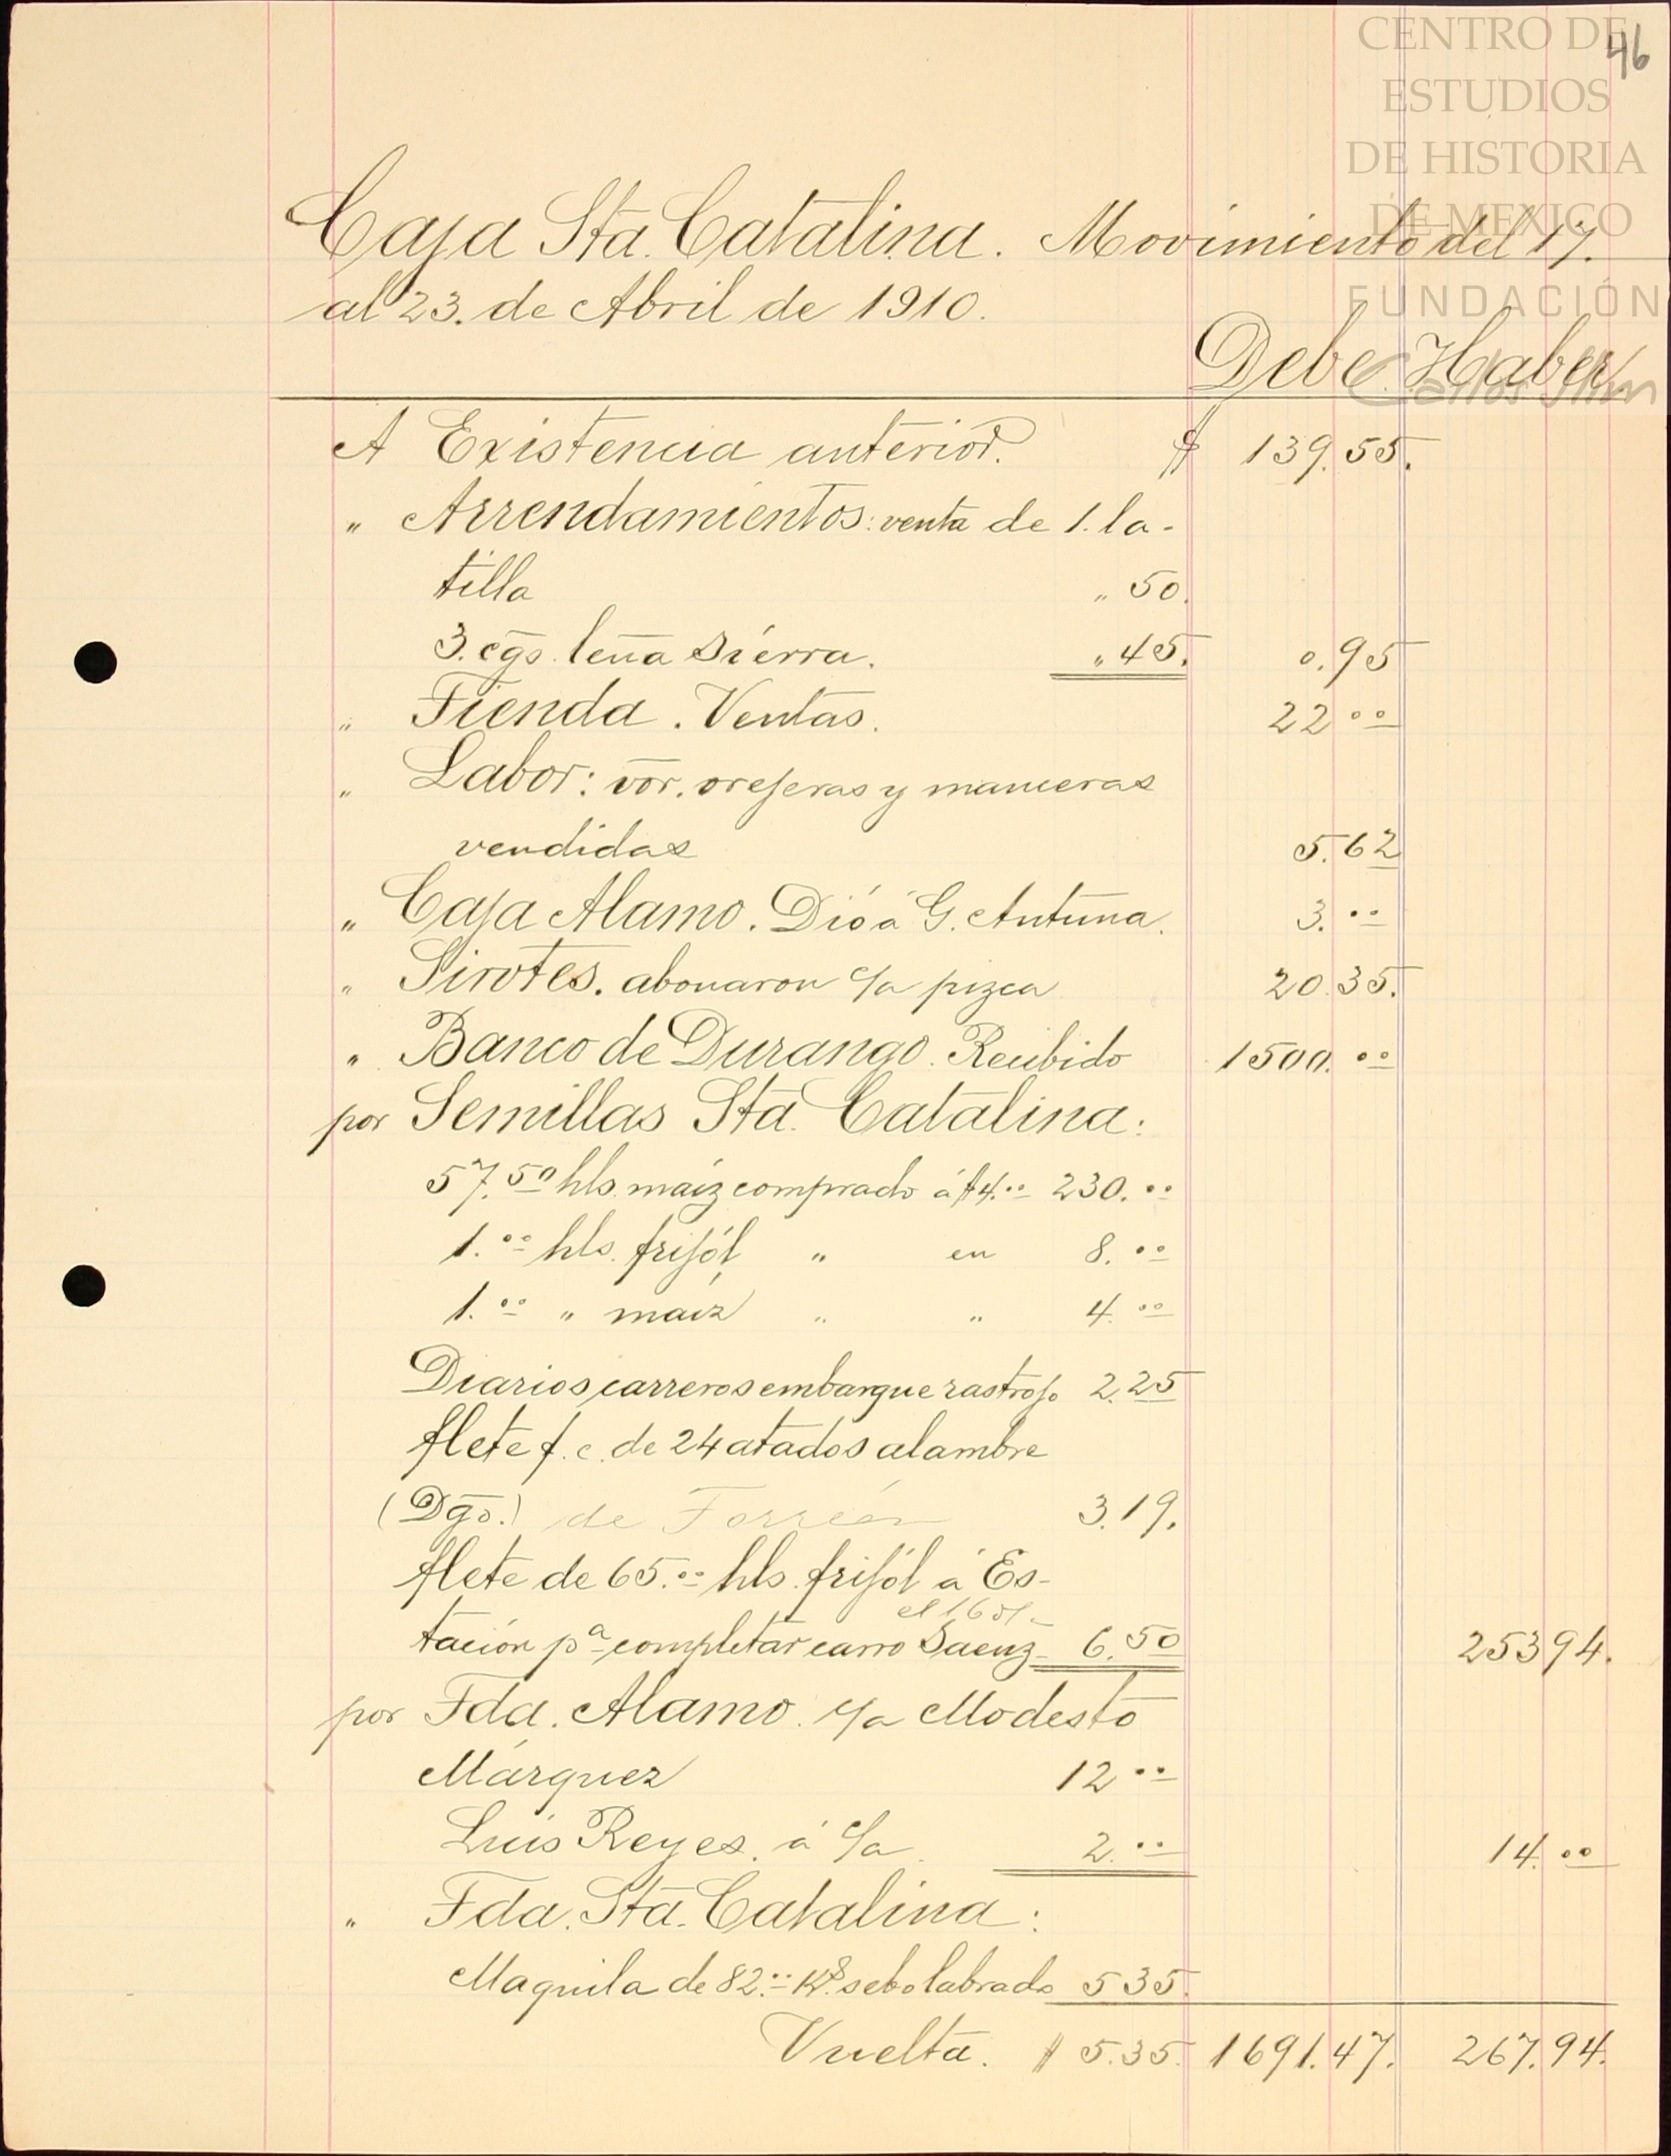 CENTRO DE
ESTUDIOS
DE HISTORIA
DE MEXICO
FUNDACIÓN
Carlos Slim
46
Caja Sta. Catalina. Movimiento del 17.
al 23. de Abril de 1910.
Debe. Haber
A Existencia anterior. $ 139.55.
" Arrendamientos: venta de 1. la-
tilla " 50.
3. cgs. leña Sierra. " 45. 0.95
" Tienda. Ventas. 22 ..
" Labor: vor. orejeras y manceras
vendidas 5.62
" Caja Alamo. Dió á G. Antuna. 3. ..
" Sirotes. abonaron c/a pizca 20.35.
" Banco de Durango. Recibido 1500. ..
por Semillas Sta. Catalina:
57.50 hls. maíz comprado á $4. .. 230. ..
1. .. hls. frijól " en 8. ..
1. .. " maiz " " 4. ..
Diarios carreros embarque rastrojo 2.25
flete f. c. de 24 atados alambre
(Dgo.) de Torreón 3.19.
flete de 65. .. hls. frijól á Es-
el 16
tación pa completar carro Saenz 6.50 253 94.
por Fda. Alamo. c/a Modesto
Márquez 12 ..
Luis Reyes. á c/a. 2. .. 14. ..
" Fda. Sta. Catalina:
Maquila de 82. .. Ks. sebo labrado 5 35.
Vuelta. $ 5.35. 1691.47. 267.94.